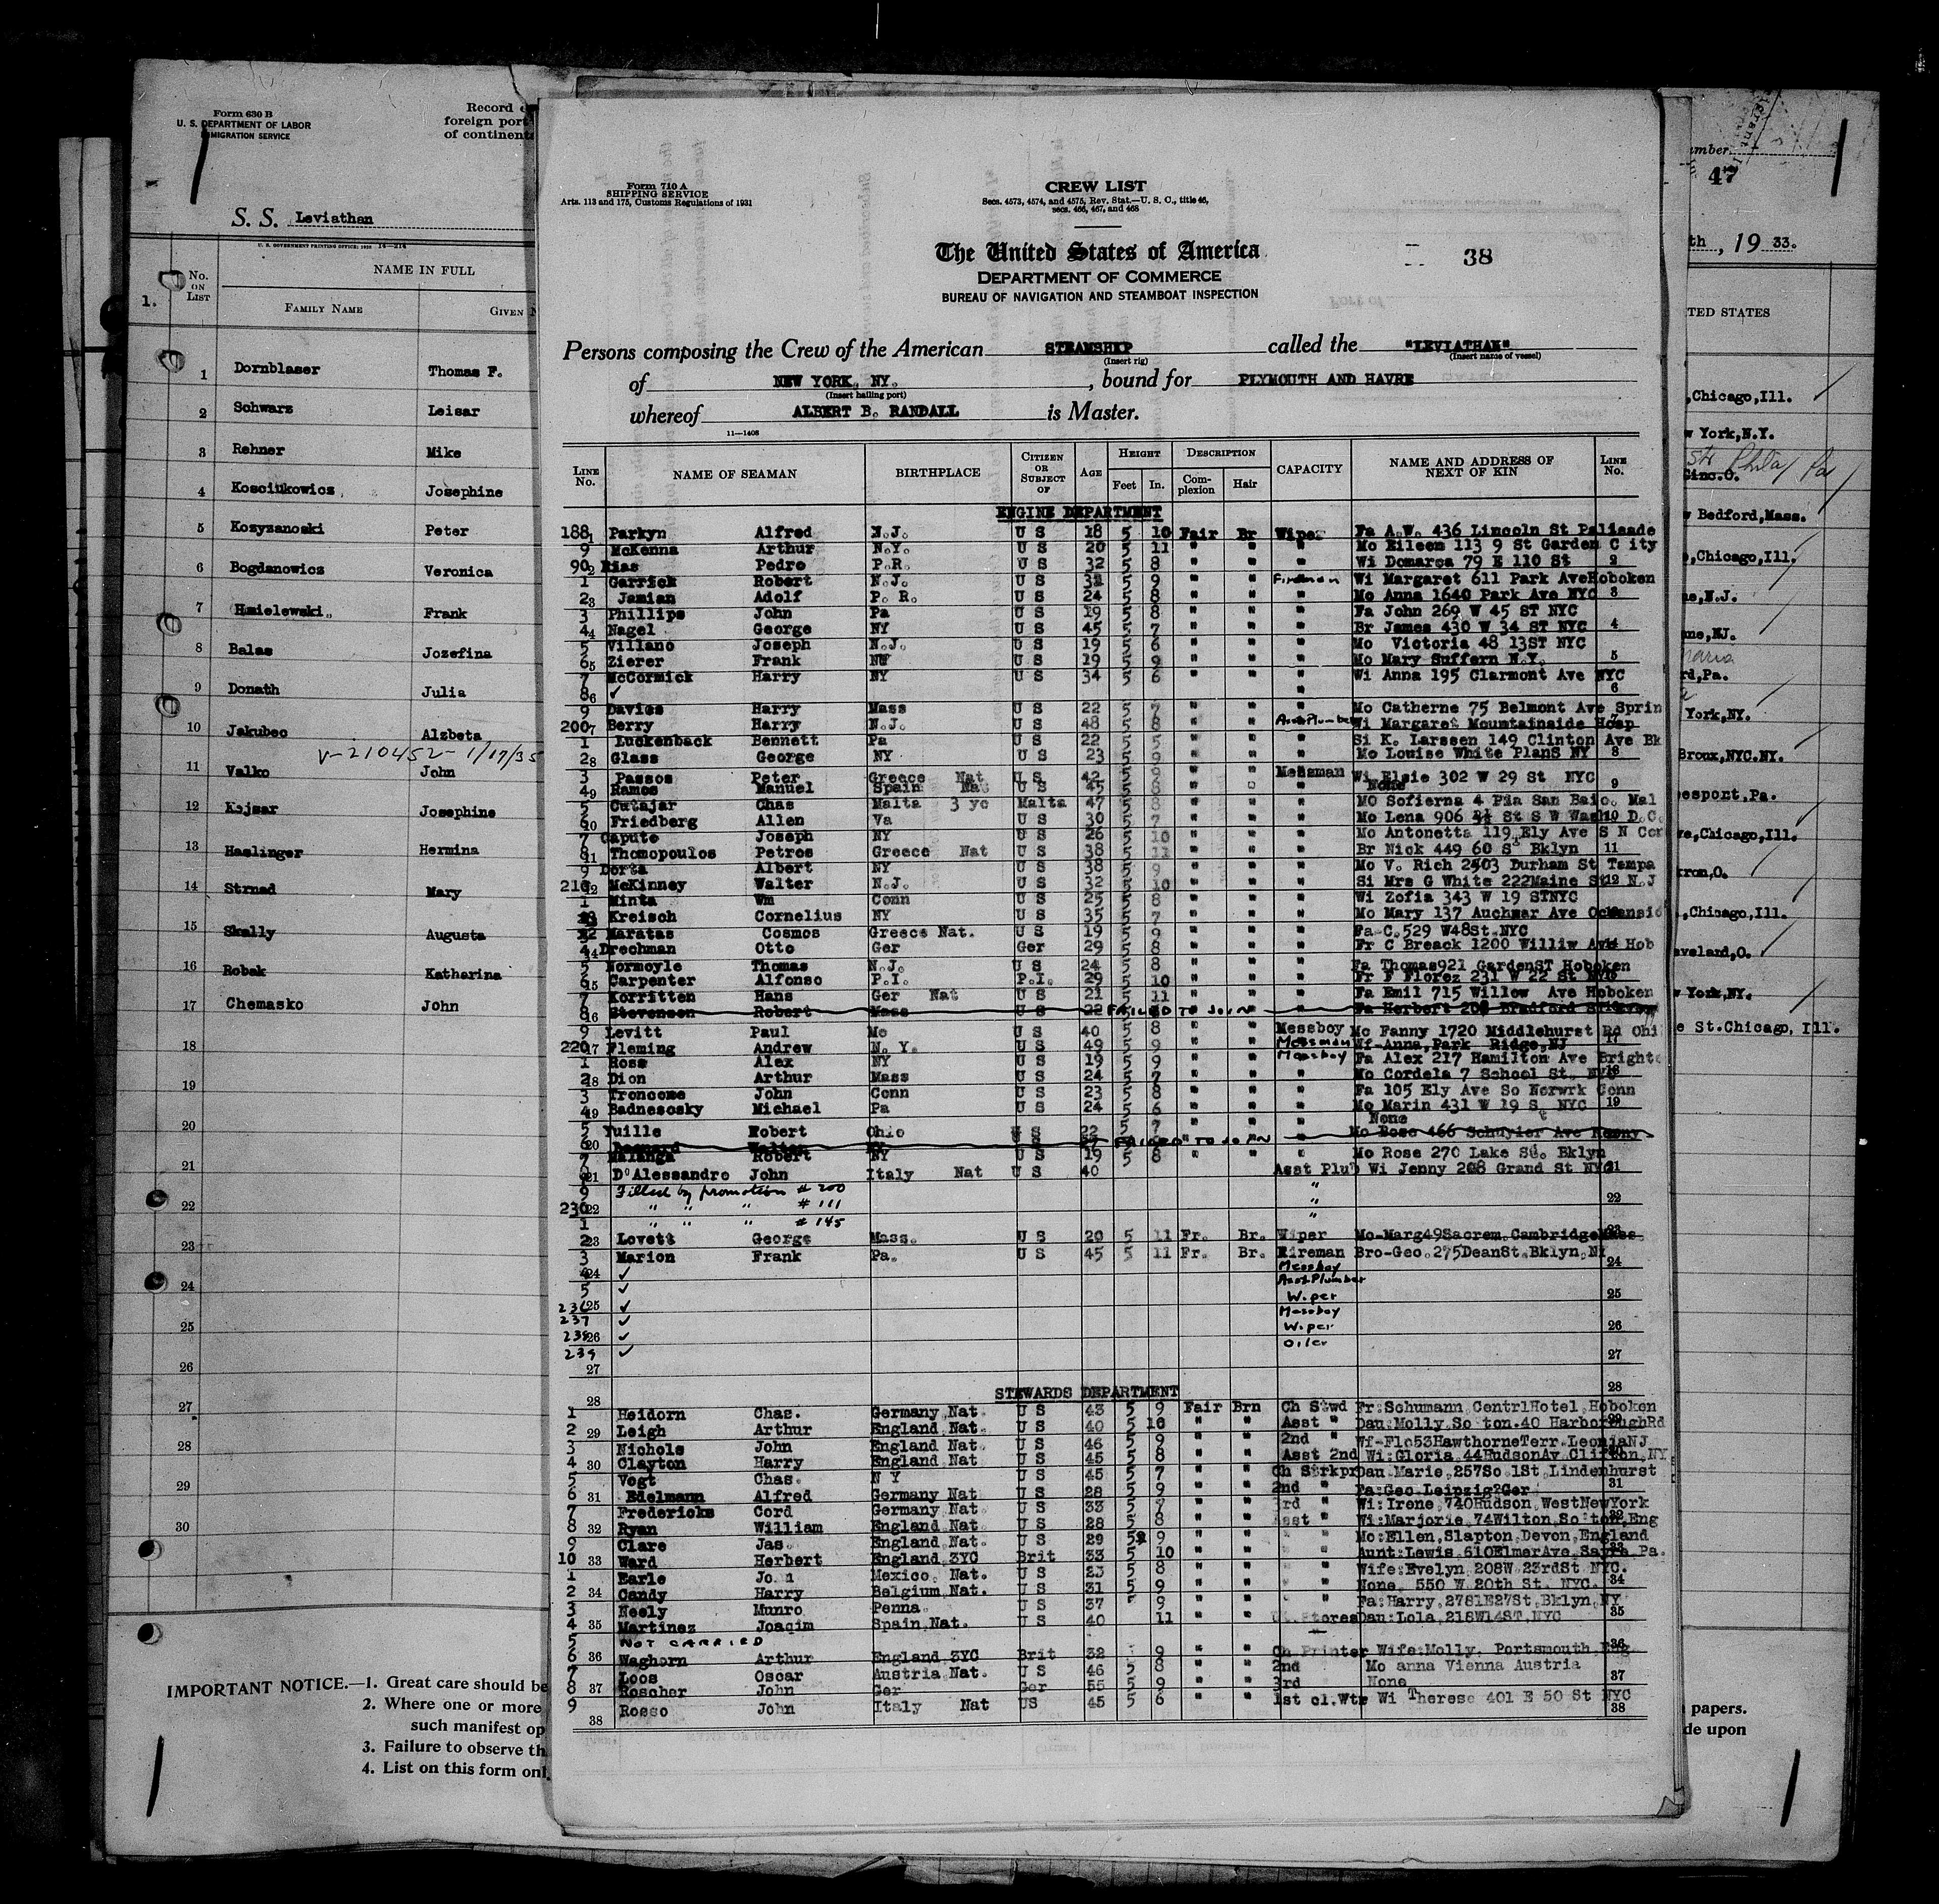 Form 630 B
U. S. DEPARTMENT OF LABOR
IMMIGRATION SERVICE
Record
foreign port
of continent
S. S. Leviathan
U. S. GOVERNMENT PRINTING OFFICE: 1929 14—216
1.
No. ON LIST
NAME IN FULL
FAMILY NAME GIVEN
1 Dornblaser Thomas F.
2 Schwarz Leisar
3 Rehner Mike
4 Kosciukowicz Josephine
5 Kozyzanoski Peter
6 Bogdanowicz Veronica
7 Hmielewski Frank
8 Balas Jozefina
9 Donath Julia
10 Jakubec Alzbeta
V-210452-1/17/35
11 Valko John
12 Kajsar Josephine
13 Haslinger Hermina
14 Strnad Mary
15 Skally Augusta
16 Robak Katharina
17 Chemasko John
18
19
20
21
22
23
24
25
26
27
28
29
30
IMPORTANT NOTICE.—1. Great care should be
2. Where one or more
such manifest op
3. Failure to observe th
4. List on this form onl
Form 710 A
SHIPPING SERVICE
Arts. 113 and 175, Customs Regulations of 1931
CREW LIST
Secs. 4573, 4574, and 4575, Rev. Stat.—U. S. C., title 46,
secs. 466, 467, and 468
The United States of America
DEPARTMENT OF COMMERCE
BUREAU OF NAVIGATION AND STEAMBOAT INSPECTION
38
Persons composing the Crew of the American STEAMSHIP called the "LEVIATHAN"
(Insert rig) (Insert name of vessel)
of NEW YORK, NY. , bound for PLYMOUTH AND HAVRE
(Insert hailing port)
whereof ALBERT B. RANDALL is Master.
11—1408
LINE No. NAME OF SEAMAN BIRTHPLACE CITIZEN OR SUBJECT OF AGE HEIGHT Feet In. DESCRIPTION Complexion Hair CAPACITY NAME AND ADDRESS OF NEXT OF KIN LINE No.
ENGINE DEPARTMENT
188 1 Parkyn Alfred N.J. U S 18 5 10 Fair Br Wiper Fa A.W. 436 Lincoln St Palisade
9 McKenna Arthur N.Y. U S 20 5 11 " " " Mo Eileen 113 9 St Garden C ity
90 2 Rias Pedro P.R. U S 32 5 8 " " " Wi Domarca 79 E 110 St 2
1 Garrick Robert N.J. U S 32 5 9 " " Fireman Wi Margaret 611 Park AveHoboken
2 3 Jamian Adolf P. R. U S 24 5 8 " " " Mo Anna 1640 Park Ave NYC 3
3 Phillips John Pa U S 19 5 8 " " " Fa John 269 W 45 ST NYC
4 4 Nagel George NY U S 45 5 7 " " " Br James 430 W 34 ST NYC 4
5 Villano Joseph N.J. U S 19 5 6 " " " Mo Victoria 48 13ST NYC
6 5 Zierer Frank NY U S 19 5 9 " " " Mo Mary Suffern N.Y. 5
7 McCormick Harry NY U S 34 5 6 " " " Wi Anna 195 Clarmont Ave NYC
8 6 ✓ " 6
9 Davies Harry Mass U S 22 5 7 " " " Mo Catherne 75 Belmont Ave Sprin
200 7 Berry Harry N.J. U S 48 5 8 " " Asst Plumber Wi Margaret Mountainside Hosp 7
1 Luckenback Bennett Pa U S 22 5 5 " " " Si K. Larssen 149 Clinton Ave Bk
2 8 Glass George NY U S 23 5 9 " " " Mo Louise White PlanS NY 8
3 Passos Peter Greece Nat U S 42 5 9 " " Messman Wi Elsie 302 W 29 St NYC
4 9 Ramos Manuel Spain Nat U S 45 5 8 " " " None 9
5 Cutajar Chas Malta 3 yc Malta 47 5 8 " " " MO Sofierna 4 Pia San Baio. Mal
6 10 Friedberg Allen Va U S 30 5 7 " " " Mo Lena 906 St S W Wash D.C. 10
7 Capute Joseph NY U S 26 5 10 " " " Mo Antonetta 119 Ely Ave S N Con
8 11 Thomopoulos Petros Greece Nat U S 38 5 11 " " " Br Nick 449 60 St Bklyn 11
9 Dorta Albert NY U S 38 5 9 " " " Mo V. Rich 2403 Durham St Tampa
210 12 McKinney Walter N.J. U S 32 5 10 " " " Si Mrs G White 222Maine St N.J 12
1 Minta Wm Conn U S 25 5 8 " " " Wi Zofia 343 W 19 STNYC
Kreisch Cornelius NY U S 35 5 7 " " " Mo Mary 137 Auchmar Ave
Maratas Cosmos Greece Nat. U S 19 5 9 " " " Fa C.529 W48St.NYC
4 14 Drechman Otto Ger Ger 29 5 8 " " " Fr C Breack 1200 Williw Ave Hob
5 Normoyle Thomas N.J. U S 24 5 8 " " " Fa Thomas921 GardenST Hoboken
6 15 Carpenter Alfonso P.I. P.I. 29 5 10 " " " Fr F Florez 231 W 22 St NY
7 Korritten Hans Ger Nat U S 21 5 11 " " " Fa Emil 715 Willow Ave Hoboken
8 16 Stevenson Robert Mass U S 22 FAILED TO JOIN " " Fa Herbert 208 Bradford St
9 Levitt Paul Mo U S 40 5 8 " " Messboy Mo Fanny 1720 Middlehurst Rd Ohi
220 17 Fleming Andrew N. Y. U S 49 5 9 " " Messman Wf-Anna,Park Ridge,NJ 17
1 Ross Alex NY U S 19 5 9 " " Messboy Fa Alex 217 Hamilton Ave Brighto
2 18 Dion Arthur Mass U S 24 5 7 " " " Mo Cordela 7 School St. NYC 18
3 Troncome John Conn U S 23 5 8 " " " Fa 105 Ely Ave So Norwrk Conn
4 19 Badnescsky Michael Pa U S 24 5 6 " " " Mo Marin 431 W 19 St NYC 19
5 Yuille Robert Ohio U S 22 5 7 " None
6 20 Walter NY U S FAILED TO JOIN " Mo Rose 466 Schuyler Ave Kearny
7 Malanga Robert NY U S 19 5 8 " " " Mo Rose 270 Lake St. Bklyn
8 21 D'Alessandro John Italy Nat U S 40 Asst Plub Wi Jenny 208 Grand St NYC 21
9 Filled by promotion # 200 "
230 22 " " " # 111 " 22
1 " " " # 145 "
2 23 Lovett George Mass. U S 20 5 11 Fr. Br. Wiper Mo-Marg49Sacrem.CambridgeMass 23
3 Marion Frank Pa. U S 45 5 11 Fr. Br. Fireman Bro-Geo.275DeanSt.Bklyn,NY
4 24 ✓ Messboy 24
5 ✓ Asst Plumber
236 25 ✓ Wiper 25
237 ✓ Messboy
238 26 ✓ Wiper 26
239 ✓ Oiler
27 27
STEWARDS DEPARTMENT
28 28
1 Heidorn Chas. Germany Nat. U S 43 5 9 Fair Brn Ch Stwd Fr:Schumann CentrlHotel Hoboken
2 29 Leigh Arthur England Nat. U S 40 5 10 " " Asst " Dau:Molly.So ton.40 HarboroughRd 29
3 Nichols John England Nat. U S 46 5 9 " " 2nd " Wf-Flo53HawthorneTerr.LeoniaNJ
4 30 Clayton Harry England Nat U S 45 5 8 " " Asst 2nd Wi:Gloria 44HudsonAv Clifton,NY 30
5 Vogt Chas. N Y U S 45 5 7 " " Ch Strkpr Dau Marie 257So 1St Lindenhurst
6 31 Edelmann Alfred Germany Nat U S 28 5 9 " " 2nd " Fa:Geo Leipzig?Ger 31
7 Fredericks Cord Germany Nat U S 33 5 7 " " 3rd " Wi:Irene 740Hudson WestNewYork
8 32 Ryan William England Nat U S 28 5 8 " " Asst " Wi:Marjorie 74Wilton So'ton,Eng 32
9 Clare Jas. England Nat. U S 29 5 9 " " " " Mo:Ellen,Slapton Devon,England
10 33 Ward Herbert England 3YC Brit 33 5 10 " " " " Aunt:Lewis 610ElmerAve Sayre Pa. 33
1 Earle John Mexico Nat. U S 23 5 8 " " " " Wife:Evelyn 208W 23rdSt NYC.
2 34 Candy Harry Belgium Nat. U S 31 5 9 " " " " None 550 W 20th St. NYC. 34
3 Neely Munro Penna. U S 37 5 9 " " " " Fa:Harry,2781E27St,Bklyn,NY
4 35 Martinez Joaqim Spain Nat. U S 40 11 " " Stores Dau:Lola,218W14ST,NYC 35
5 NOT CARRIED
6 36 Waghorn Arthur England 3YC Brit 32 9 " " Ch Printer Wife:Molly. Portsmouth Eng 36
7 Loos Oscar Austria Nat. U S 46 5 8 " " 2nd Mo anna Vienna Austria
8 37 Roscher John Ger Ger 55 5 9 " " 3rd None 37
9 Rosso John Italy Nat US 45 5 6 " " 1st cl.Wtr Wi Therese 401 E 50 St NYC
38 38
umber
47
th , 19 33.
TED STATES
,Chicago,Ill.
w York,N.Y.
St Phila Pa
Cinc.O.
w Bedford,Mass.
,Chicago,Ill.
ne,N.J.
ne,NJ.
rd,Pa.
York,NY.
Bronx,NYC.NY.
eesport,Pa.
ve,Chicago,Ill.
kron,O.
.,Chicago,Ill.
eveland,O.
w York,NY.
e St.Chicago, Ill.
papers.
de upon